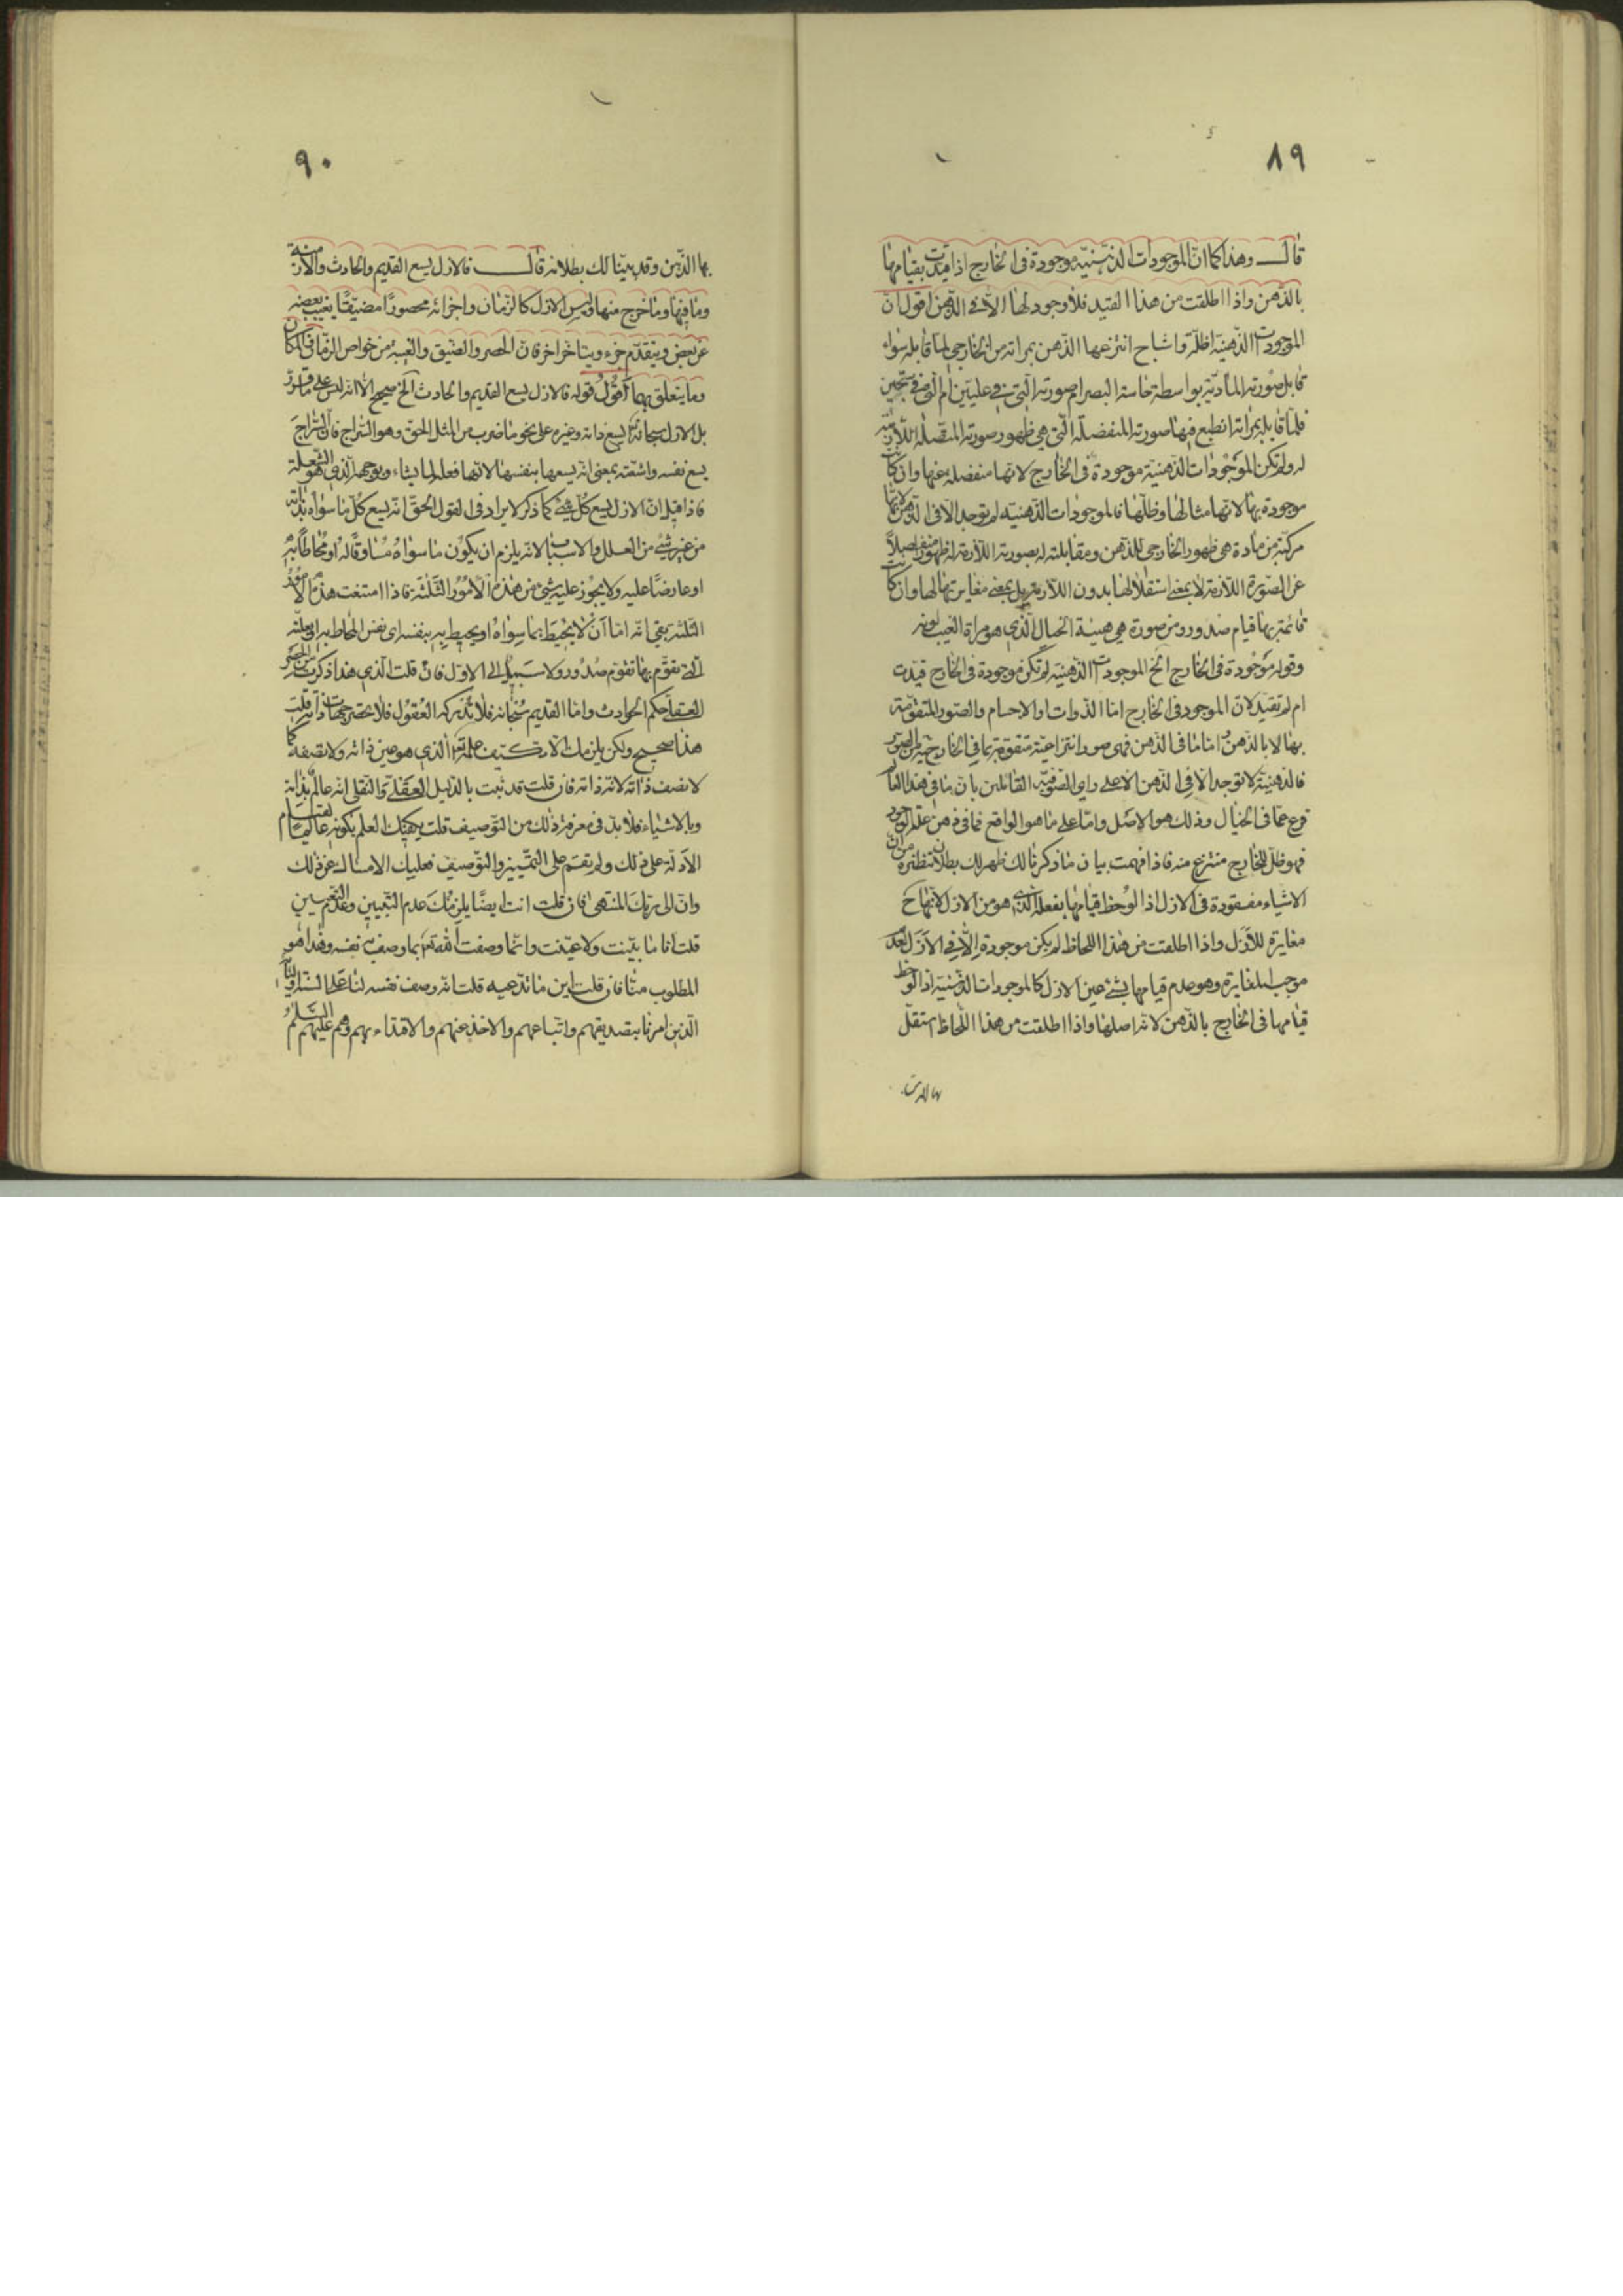 ٨٩
قال وهذا كما ان الموجودات الذهنية موجودة فى الخارج اذا قيدت بقيامها
بالذهن واذا اطلقت من هذا القيد فلا وجود لها الا فى الذهن اقول ان
الموجودات الذهنية اظلة واشباح انتزعها الذهن بمراته من الخارجى لما قابله سواء
قابل صورته المادية بواسطة حاسة البصر ام صورته التى فى عليين ام التى فى سجين
فلما قابله بمراته انطبع فيها صورته المنفصلة التى هى ظهور صورته المتصلة اللازمة
له ولم تكن الموجودات الذهنية موجودة فى الخارج لانها منفصلة عنها وان كانت
موجودة بها لانها مثالها وظلها فالموجودات الذهنية لم توجد الا فى الذهن لانها
مركبة من مادة هى ظهور الخارجى للذهن ومقابلته له بصورته اللازمة له ظهورا منفصلا
عن الصورة اللازمة لا بمعنى استقلالها بدون اللازمة بل بمعنى مغايرتها لها وان كانت
قائمة بها قيام صدور ومن صورة هى هيئة الخيال الذى هو مراة الغيب لونه
وقوله موجودة فى الخارج الخ الموجودات الذهنية لم تكن موجودة فى الخارج قيدت
ام لم تقيد لان الموجود فى الخارج اما الذوات او الاجسام والصور المتقومة
بها لا بالذهن واما ما فى الذهن فهى صور انتزاعية متقومة بما فى الخارج من الصور
فالذهنية لا توجد الا فى الذهن الا على راى الصوفية القائلين بان ما فى هذا العالم
فرع عما فى الخيال وذلك هو الاصل واما على ما هو الواقع فما فى ذهن علة الوجود
فهو ظل للخارج منتزع منه فاذا فهمت بيان ما ذكرنا لك ظهر لك بطلان تنظيره من ان
الاشياء مفقودة فى الازل اذا لوحظ قيامها بفعله الذى هو من الازل لانها ح
مغايرة للازل واذا اطلقت من هذا اللحاظ لم يكن موجودة الا فى الازل لعدم
موجب المغايرة وهو عدم قيامها بشئ عين الازل كالموجودات الذهنية اذا لوحظ
قيامها فى الخارج بالذهن لانه اصلها واذا اطلقت من هذا اللحاظ استقل
بها الذهن
٩٠
بها الذهن وقد بينا لك بطلانه قال فالازل يسع القديم والحادث والازمنة
وما فيها وما خرج منها وليس الازل كالزمان واجزائه محصورا مضيقا يغيب بعضه
عن بعض ويتقدم جزء ويتاخر اخر فان الحصر والضيق والغيبة من خواص الزمان والمكان
وما يتعلق بهما اقول قوله فالازل يسع القديم والحادث الخ صحيح الا انه ليس على ما قرر
بل الازل سبحانه يسع ذاته وغيره على نحو ما ضرب من المثل الحق وهو السراج فان السراج
يسع نفسه واشعته بمعنى انه يسعها بنفسها لانها فعله لما يشاء وبوجهه الذى هو الشعلة
فاذا قيل ان الازل يسع كل شئ كما ذكر لا يراد فى القول الحق انه يسع كل ما سواه بذاته
من غير شئ من العلل والاسباب لانه يلزم ان يكون ما سواه مساوقا له او مخالطا به
او عارضا عليه ولا يجوز عليه شئ من هذه الامور الثلثة فاذا امتنعت هذه الامور
الثلثة بقى انه اما ان لا يحيط بما سواه او يحيط به بنفسه اى نفس المحاط به او بعلته
التى تقوم بها تقوم صدور ولا سبيل الى الاول فان قلت الذى هذا ذكرت من الحصر
العقلى حكم الحوادث واما القديم سبحانه فلا تدركه العقول فلا تحصر جهات ذاته قلت
هذا صحيح ولكن يلزمك الا تكيف علمه تعالى الذى هو عين ذاته ولا تصفه كما
لا تصف ذاته لانه ذاته فان قلت قد ثبت بالدليل العقلى والنقلى انه عالم بذاته
وبالاشياء فلا بد فى معرفة ذلك من التوصيف قلت يكفيك العلم بكونه عالما لقيام
الادلة على ذلك ولم تقم على التمييز والتوصيف فعليك الامساك عن ذلك
وان الى ربك المنتهى فان قلت انت ايضا يلزمك عدم التبيين وعدم التعيين
قلت انا ما بينت ولا عينت وانما وصفت الله تعالى بما وصف به نفسه وهذا هو
المطلوب منا فان قلت اين ما تدعيه قلت انه وصف نفسه لنا على السنة اوليائه
الذين امرنا بتصديقهم واتباعهم والاخذ عنهم والاقتداء بهم وهم عليهم السلام